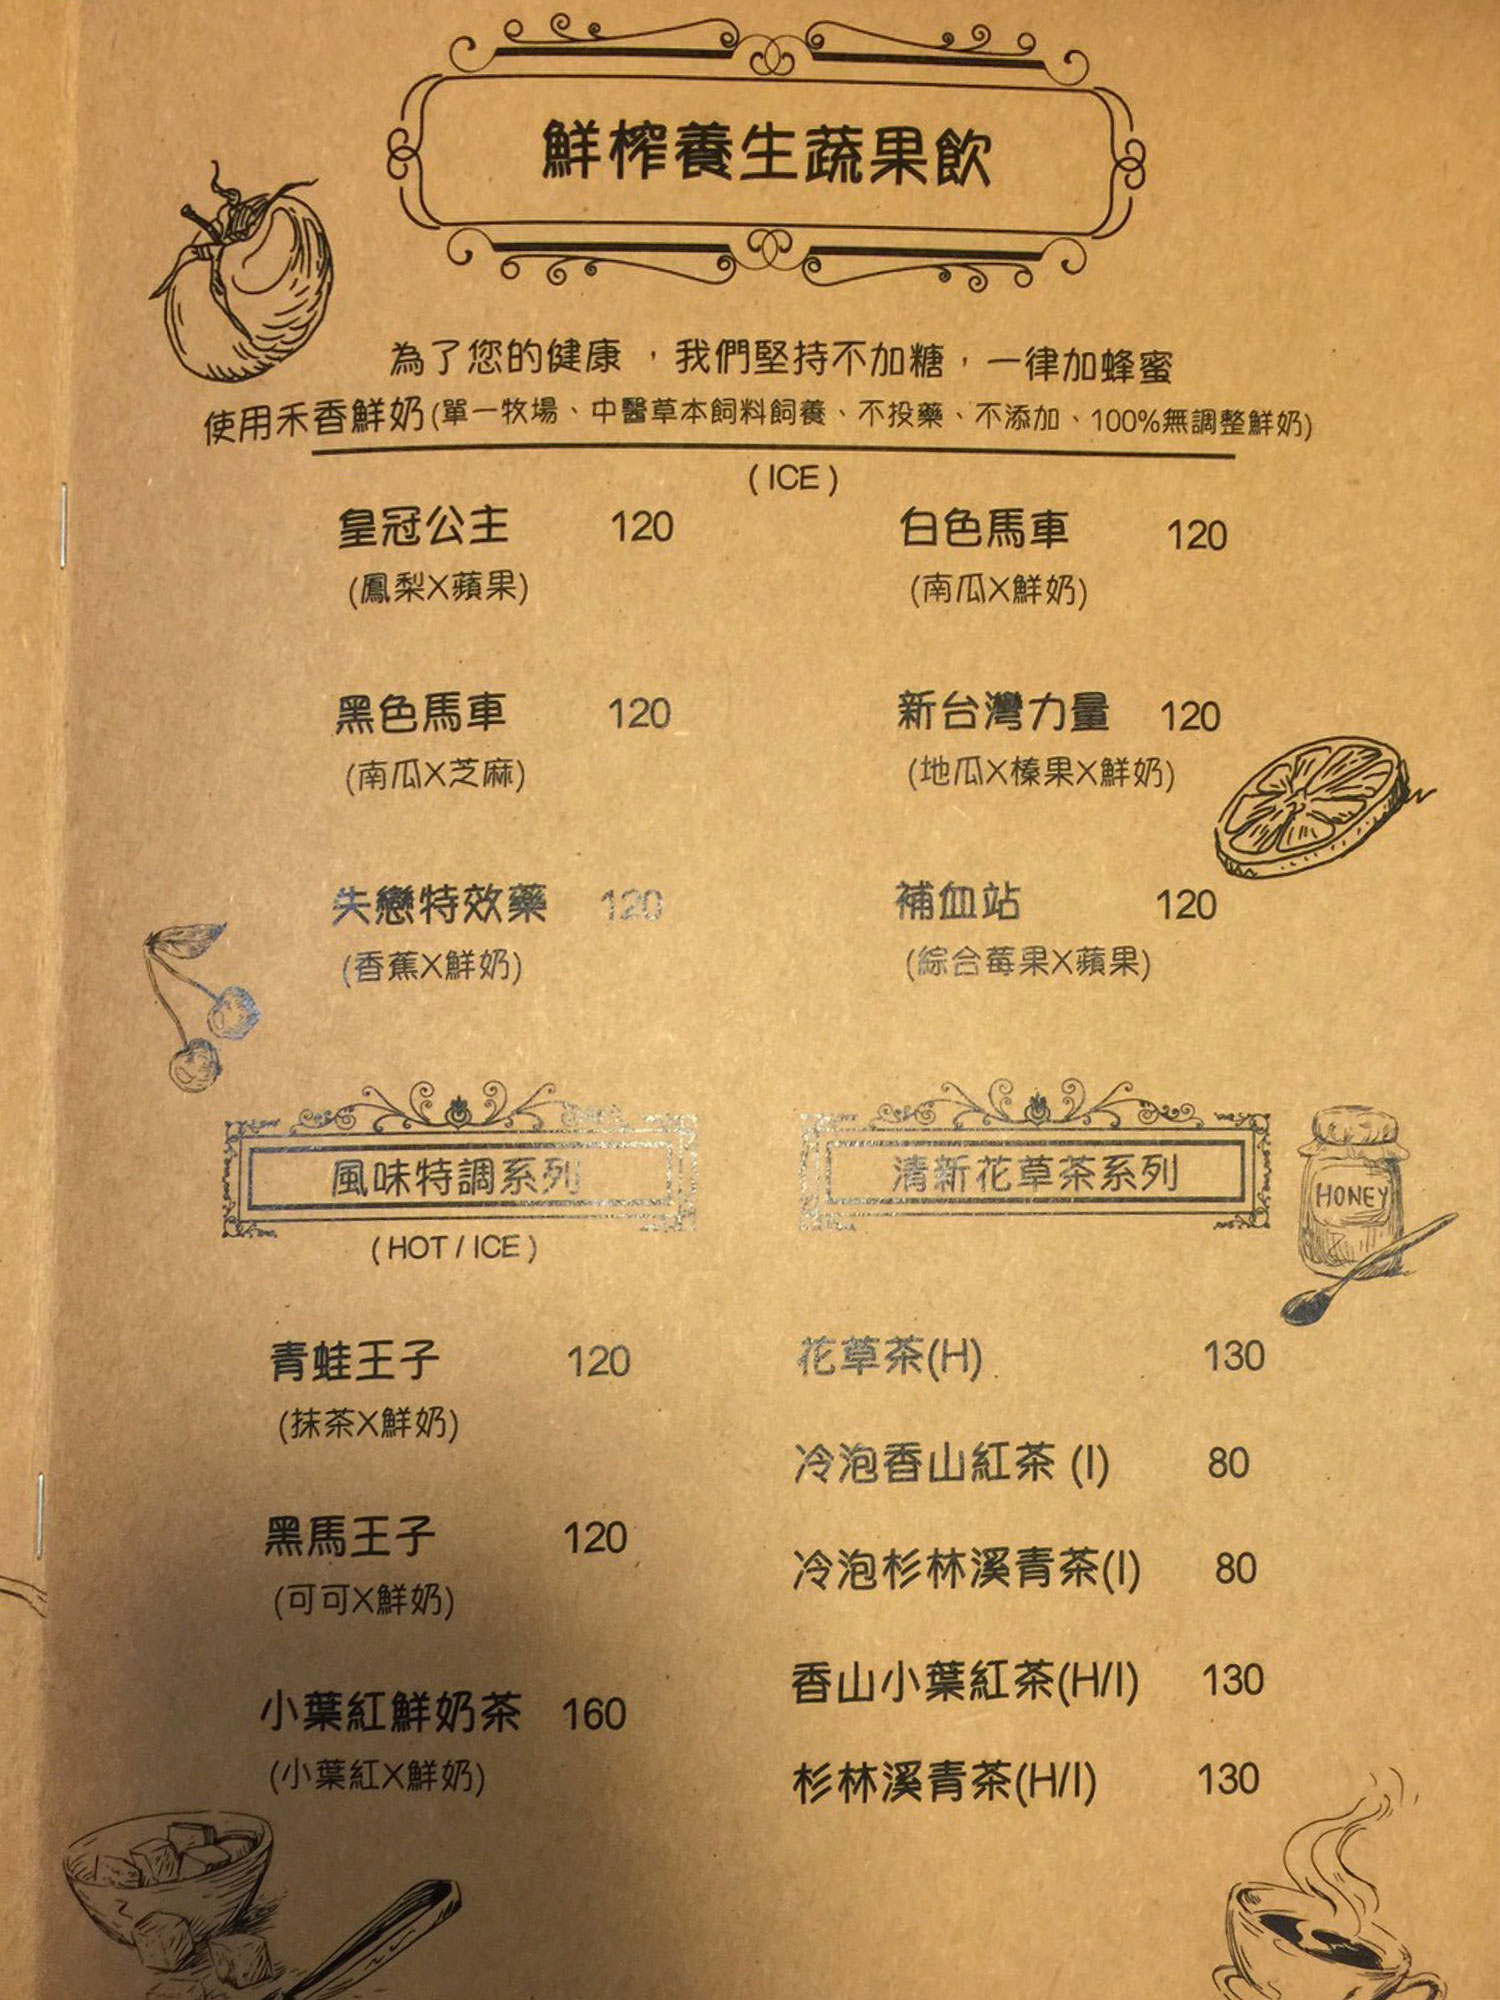 鮮榨養生蔬果飲
為了您的健康，我們堅持不加糖，一律加蜂蜜
使用禾香鮮奶(單一牧場、中醫草本飼料飼養、不投藥、不添加、100%無調整鮮奶)
(ICE)
皇冠公主 120
(鳳梨X蘋果)
白色馬車 120
(南瓜X鮮奶)
黑色馬車 120
(南瓜X芝麻)
新台灣力量 120
(地瓜X榛果X鮮奶)
失戀特效藥 120
(香蕉X鮮奶)
補血站 120
(綜合莓果X蘋果)
風味特調系列
(HOT / ICE)
青蛙王子 120
(抹茶X鮮奶)
黑馬王子 120
(可可X鮮奶)
小葉紅鮮奶茶 160
(小葉紅X鮮奶)
清新花草茶系列
HONEY
花草茶(H) 130
冷泡香山紅茶 (I) 80
冷泡杉林溪青茶(I) 80
香山小葉紅茶(H/I) 130
杉林溪青茶(H/I) 130